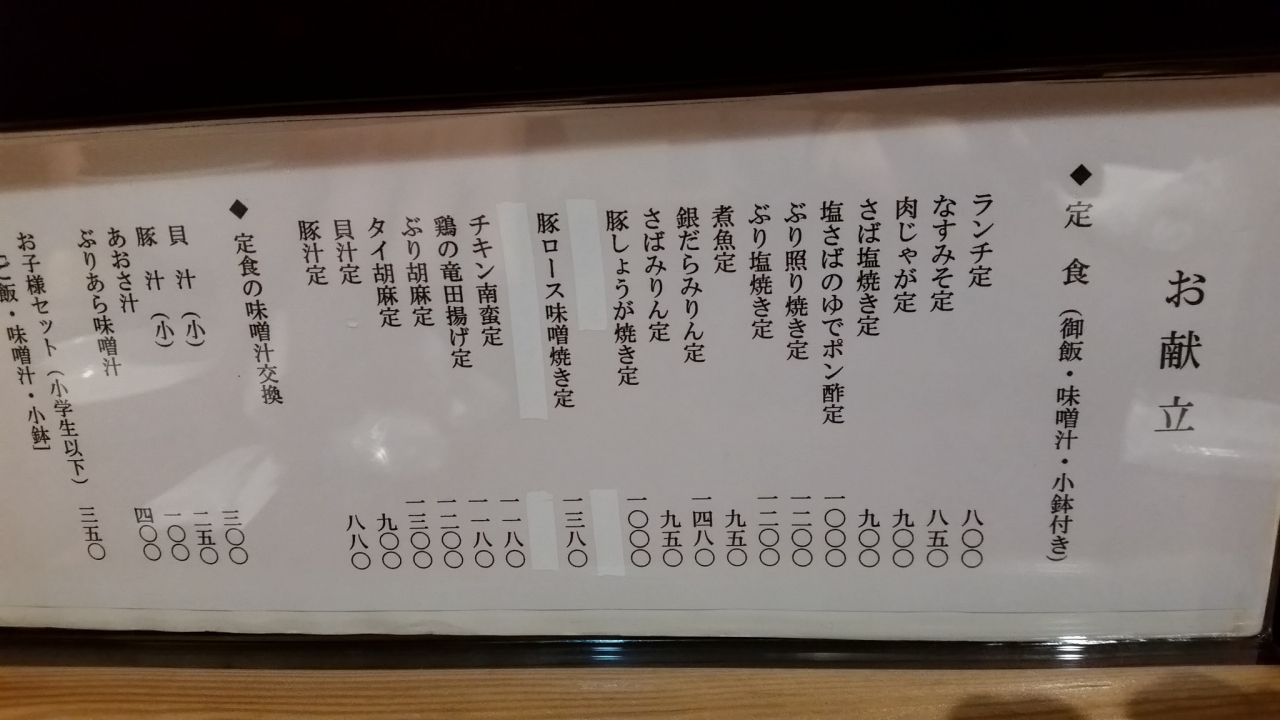 お献立
◆定食（御飯・味噌汁・小鉢付き）
ランチ定 八〇〇
なすみそ定 八五〇
肉じゃが定 九〇〇
さば塩焼き定 九〇〇
塩さばのゆでポン酢定 一〇〇〇
ぶり照り焼き定 一二〇〇
ぶり塩焼き定 一二〇〇
煮魚定 九五〇
銀だらみりん定 一四八〇
さばみりん定 九五〇
豚しょうが焼き定 一〇〇〇
豚ロース味噌焼き定 一三八〇
チキン南蛮定 一一八〇
鶏の竜田揚げ定 一一八〇
ぶり胡麻定 一二〇〇
タイ胡麻定 一三〇〇
貝汁定 九〇〇
豚汁定 八八〇
◆定食の味噌汁交換
貝汁（小） 三〇〇
豚汁（小） 二五〇
あおさ汁 一〇〇
ぶりあら味噌汁 四〇〇
お子様セット（小学生以下） 三五〇
飯・味噌汁・小鉢］